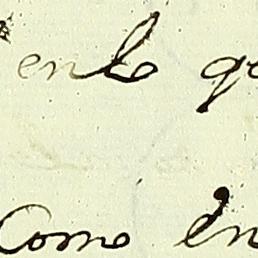 enlo q
Como en